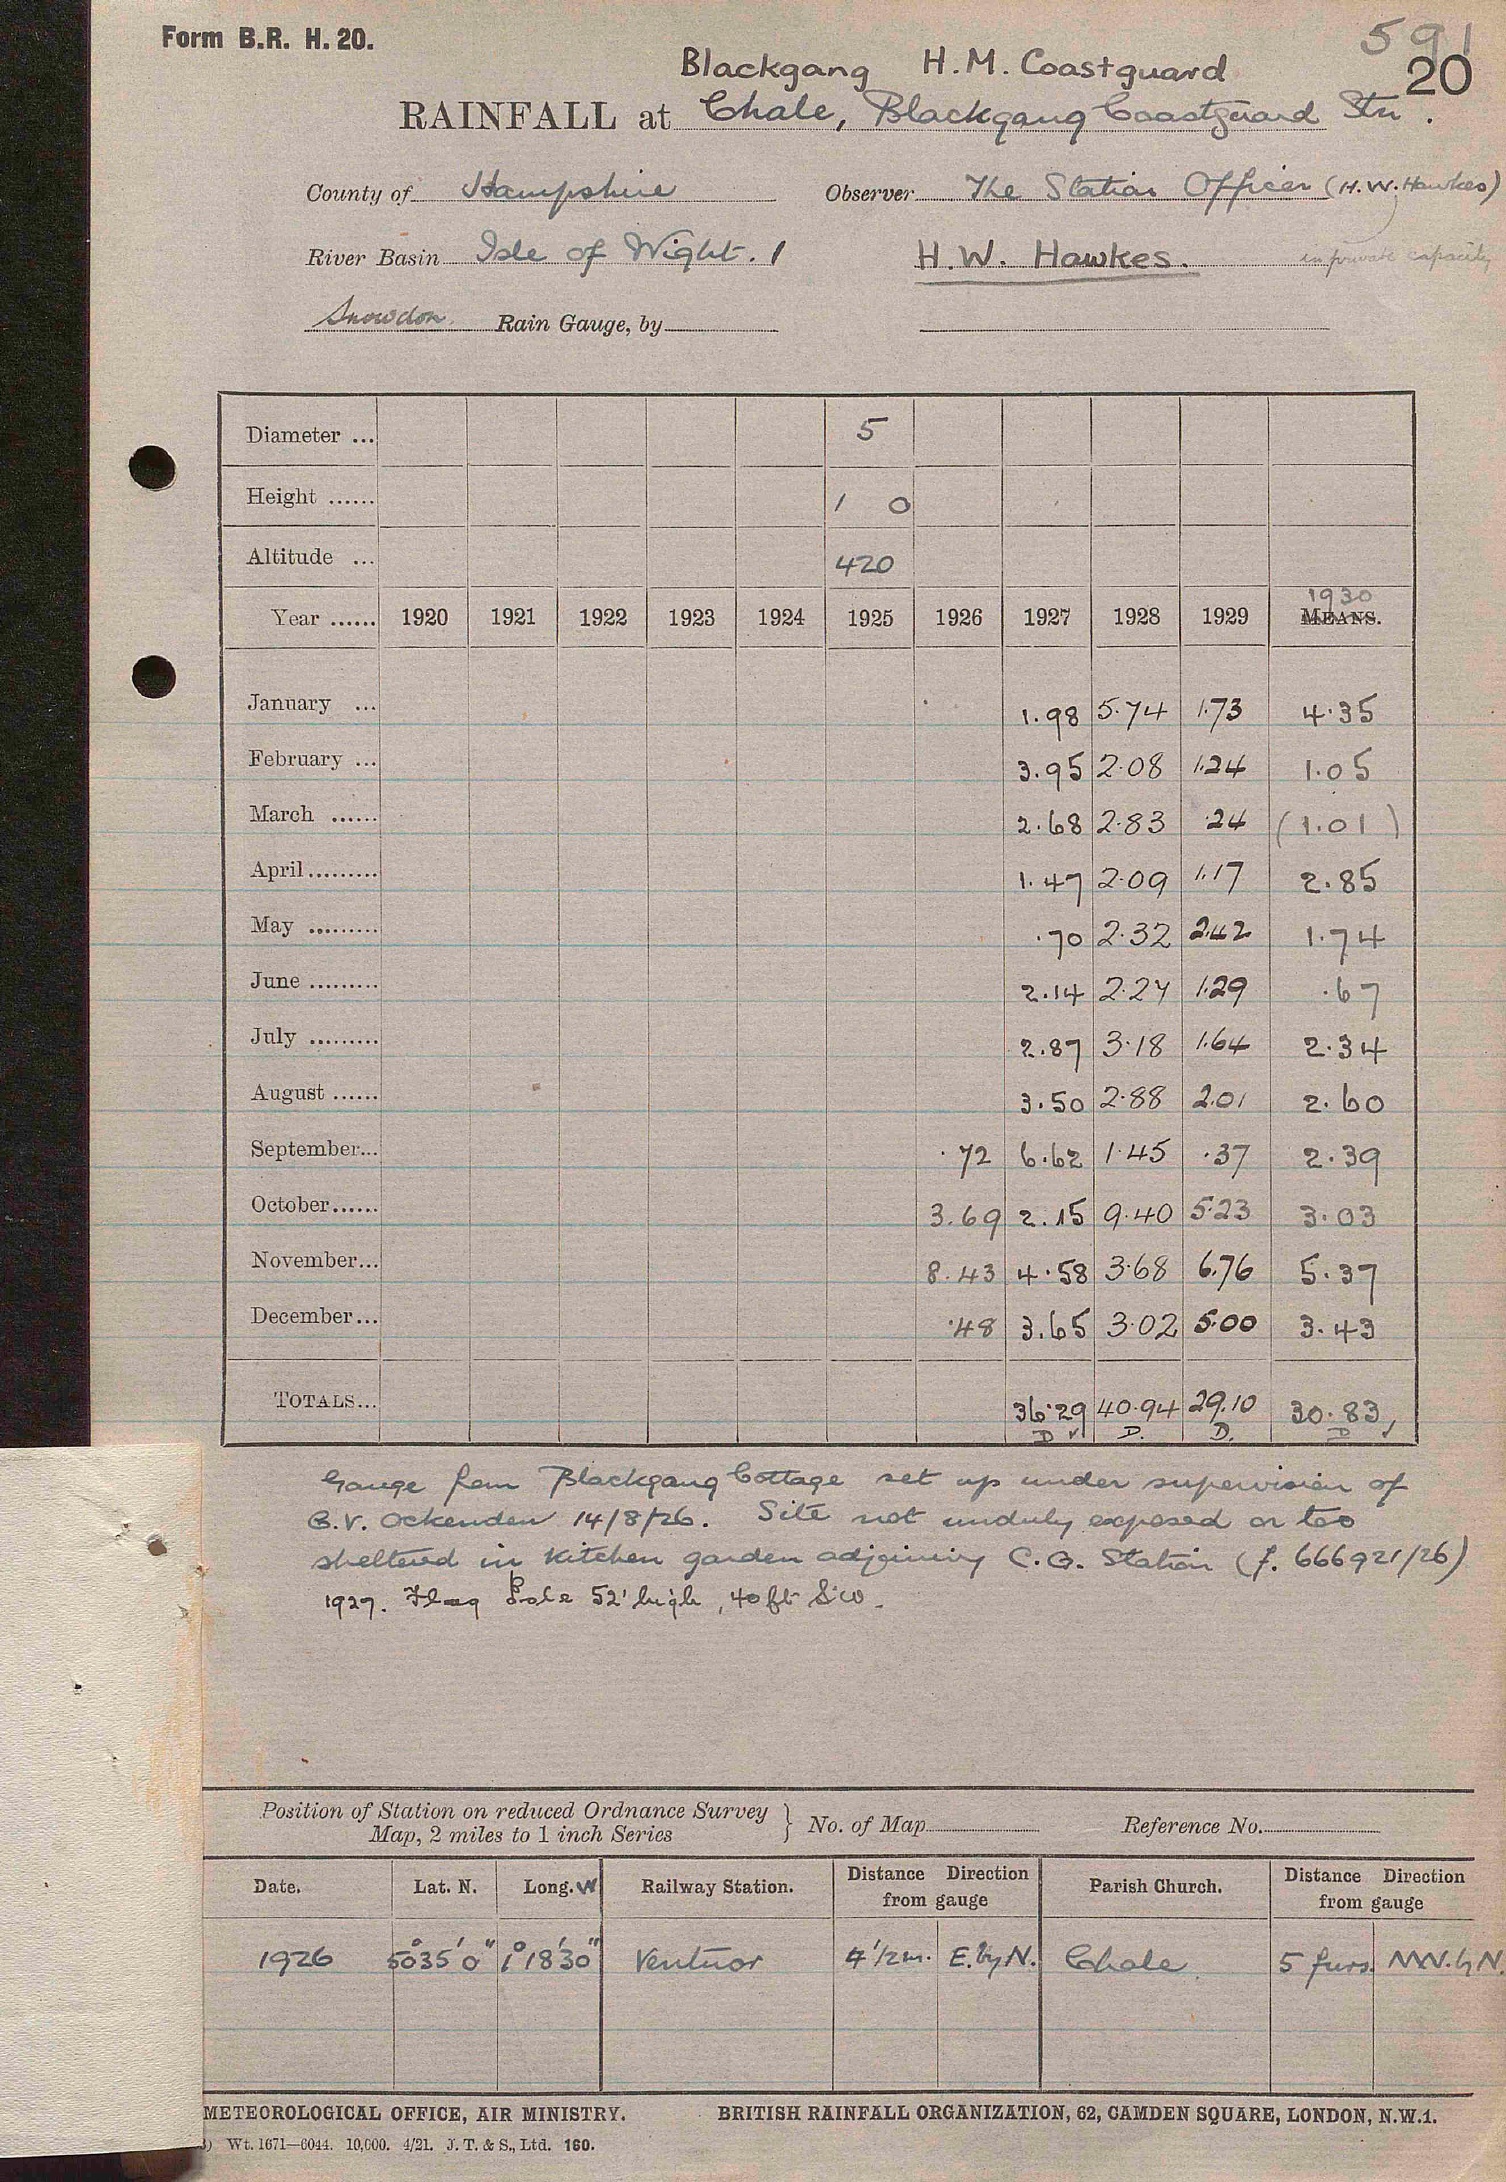 Form B.R. H. 20.
591
20
Blackgang H.M. Coastguard
RAINFALL at Chale, Blackgang Coastguard Stn.
County of Hampshire Observer The Station Officer (H.W. Hawkes)
River Basin Isle of Wight. 1 H.W. Hawkes. in private capacity
Snowdon Rain Gauge, by
Diameter ... 5
Height ...... 1 0
Altitude ... 420
1930
Year ...... 1920 1921 1922 1923 1924 1925 1926 1927 1928 1929 MEANS.
January ... 1.98 5.74 1.73 4.35
February ... 3.95 2.08 1.24 1.05
March ...... 2.68 2.83 .24 (1.01)
April ......... 1.47 2.09 1.17 2.85
May ......... .70 2.32 2.42 1.74
June ......... 2.14 2.27 1.29 .67
July ......... 2.87 3.18 1.64 2.34
August ...... 3.50 2.88 2.01 2.60
September... .72 6.62 1.45 .37 2.39
October ...... 3.69 2.15 9.40 5.23 3.03
November... 8.43 4.58 3.68 6.76 5.37
December... .48 3.65 3.02 5.00 3.43
TOTALS... 36.29 40.94 29.10 30.83
D ✓ D. D. D ✓
Gauge from Blackgang Cottage set up under supervision of
G.V. Ockenden 14/8/26. Site not unduly exposed or too
sheltered in kitchen garden adjoining C.G. Station (f. 666921/26)
1927. Flag Pole 52' high, 40 ft SW.
Position of Station on reduced Ordnance Survey
Map, 2 miles to 1 inch Series } No. of Map Reference No.
Date. Lat. N. Long. W Railway Station. Distance Direction from gauge Parish Church. Distance Direction from gauge
1926 50° 35' 0" 1° 18' 30" Ventnor 4 1/2 m. E. by N. Chale 5 furs. NW. by N.
METEOROLOGICAL OFFICE, AIR MINISTRY. BRITISH RAINFALL ORGANIZATION, 62, CAMDEN SQUARE, LONDON, N.W.1.
) Wt. 1671—6044. 10,000. 4/21. J. T. & S., Ltd. 160.